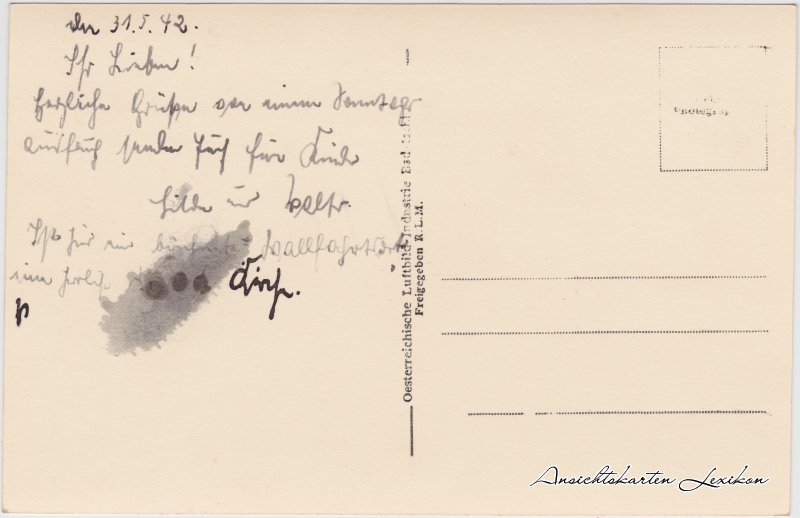 den 31.5.42.
Ihr Lieben!
Herzliche Grüße von einem Sonntags
ausflug senden Euch für Kinder
Hilde u. Walter.
Ist hier ein Wallfahrtsort
eine herrliche
Kirche.
Oesterreichische Luftbild-Industrie Bad
Freigegeben R.L.M.
Photograp
Ansichtskarten Lexikon